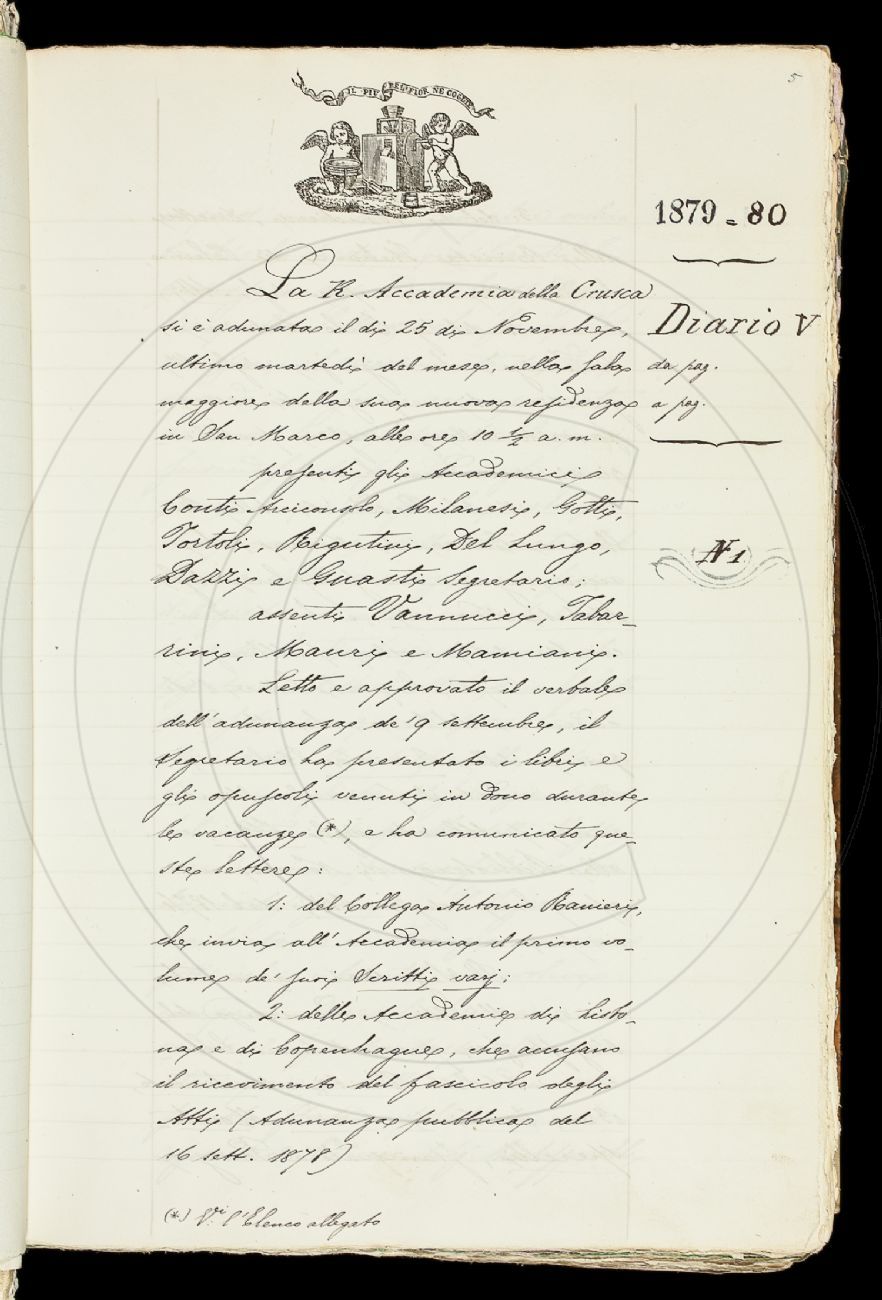 5
IL PIÙ BEL FIOR NE COGLIE
1879 = 80
Diario V
da pag.
a pag.
N 1
La R. Accademia della Crusca
si è adunata il dì 25 di Novembre,
ultimo martedì del mese, nella sala
maggiore della sua nuova residenza
in San Marco, alle ore 10 ½ a. m.
presenti gli Accademici
Conti Arciconsolo, Milanesi, Gotti,
Tortoli, Rigutini, Del Lungo,
Dazzi e Guasti Segretario;
assenti Vannucci, Tabar-
rini, Mauri e Mamiani.
Letto e approvato il verbale
dell'adunanza de' 9 settembre, il
Segretario ha presentato i libri e
gli opuscoli venuti in dono durante
le vacanze (*), e ha comunicato que-
ste lettere:
1: del Collega Antonio Ranieri,
che invia all'Accademia il primo vo-
lume de' suoi Scritti varj;
2: delle Accademie di Lisbo-
na e di Copenhague, che accusano
il ricevimento del fascicolo degli
Atti (Adunanza pubblica del
16 sett. 1878)
(*) V.i l'Elenco allegato